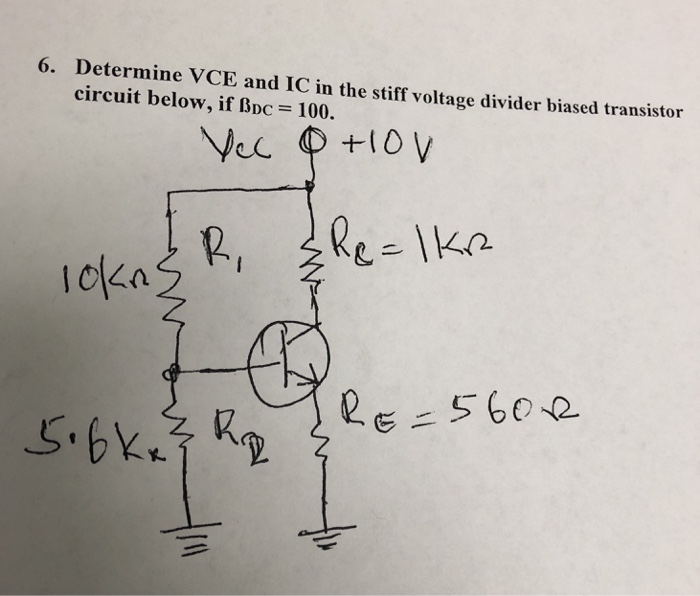 6. Determine VCE and IC in the stiff voltage divider biased transistor
circuit below, if ßDC = 100.
Vcc +10V
R1 RC = 1KΩ
10KΩ
RE = 560Ω
5.6K R2